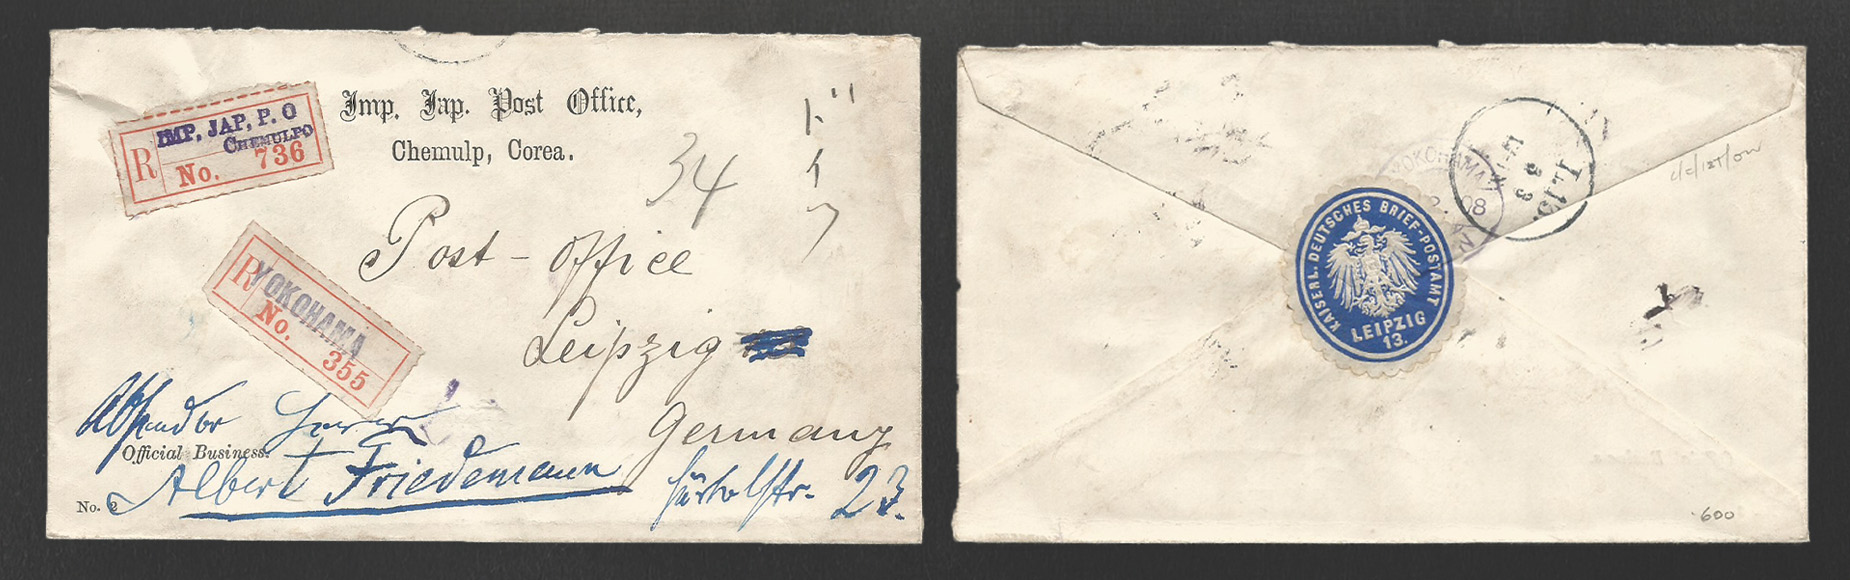 IMP. JAP. P. O
CHEMULPO
R No. 736
Imp. Jap. Post Office,
Chemulp, Corea.
34
Post-Office
Leipzig
Germany
R YOKOHAMA
No. 355
Absender Herrn
Official Business.
Albert Friedemann
23.
No. 2
YOKOHAMA
08
KAISERL. DEUTSCHES BRIEF-POSTAMT
LEIPZIG
13.
600